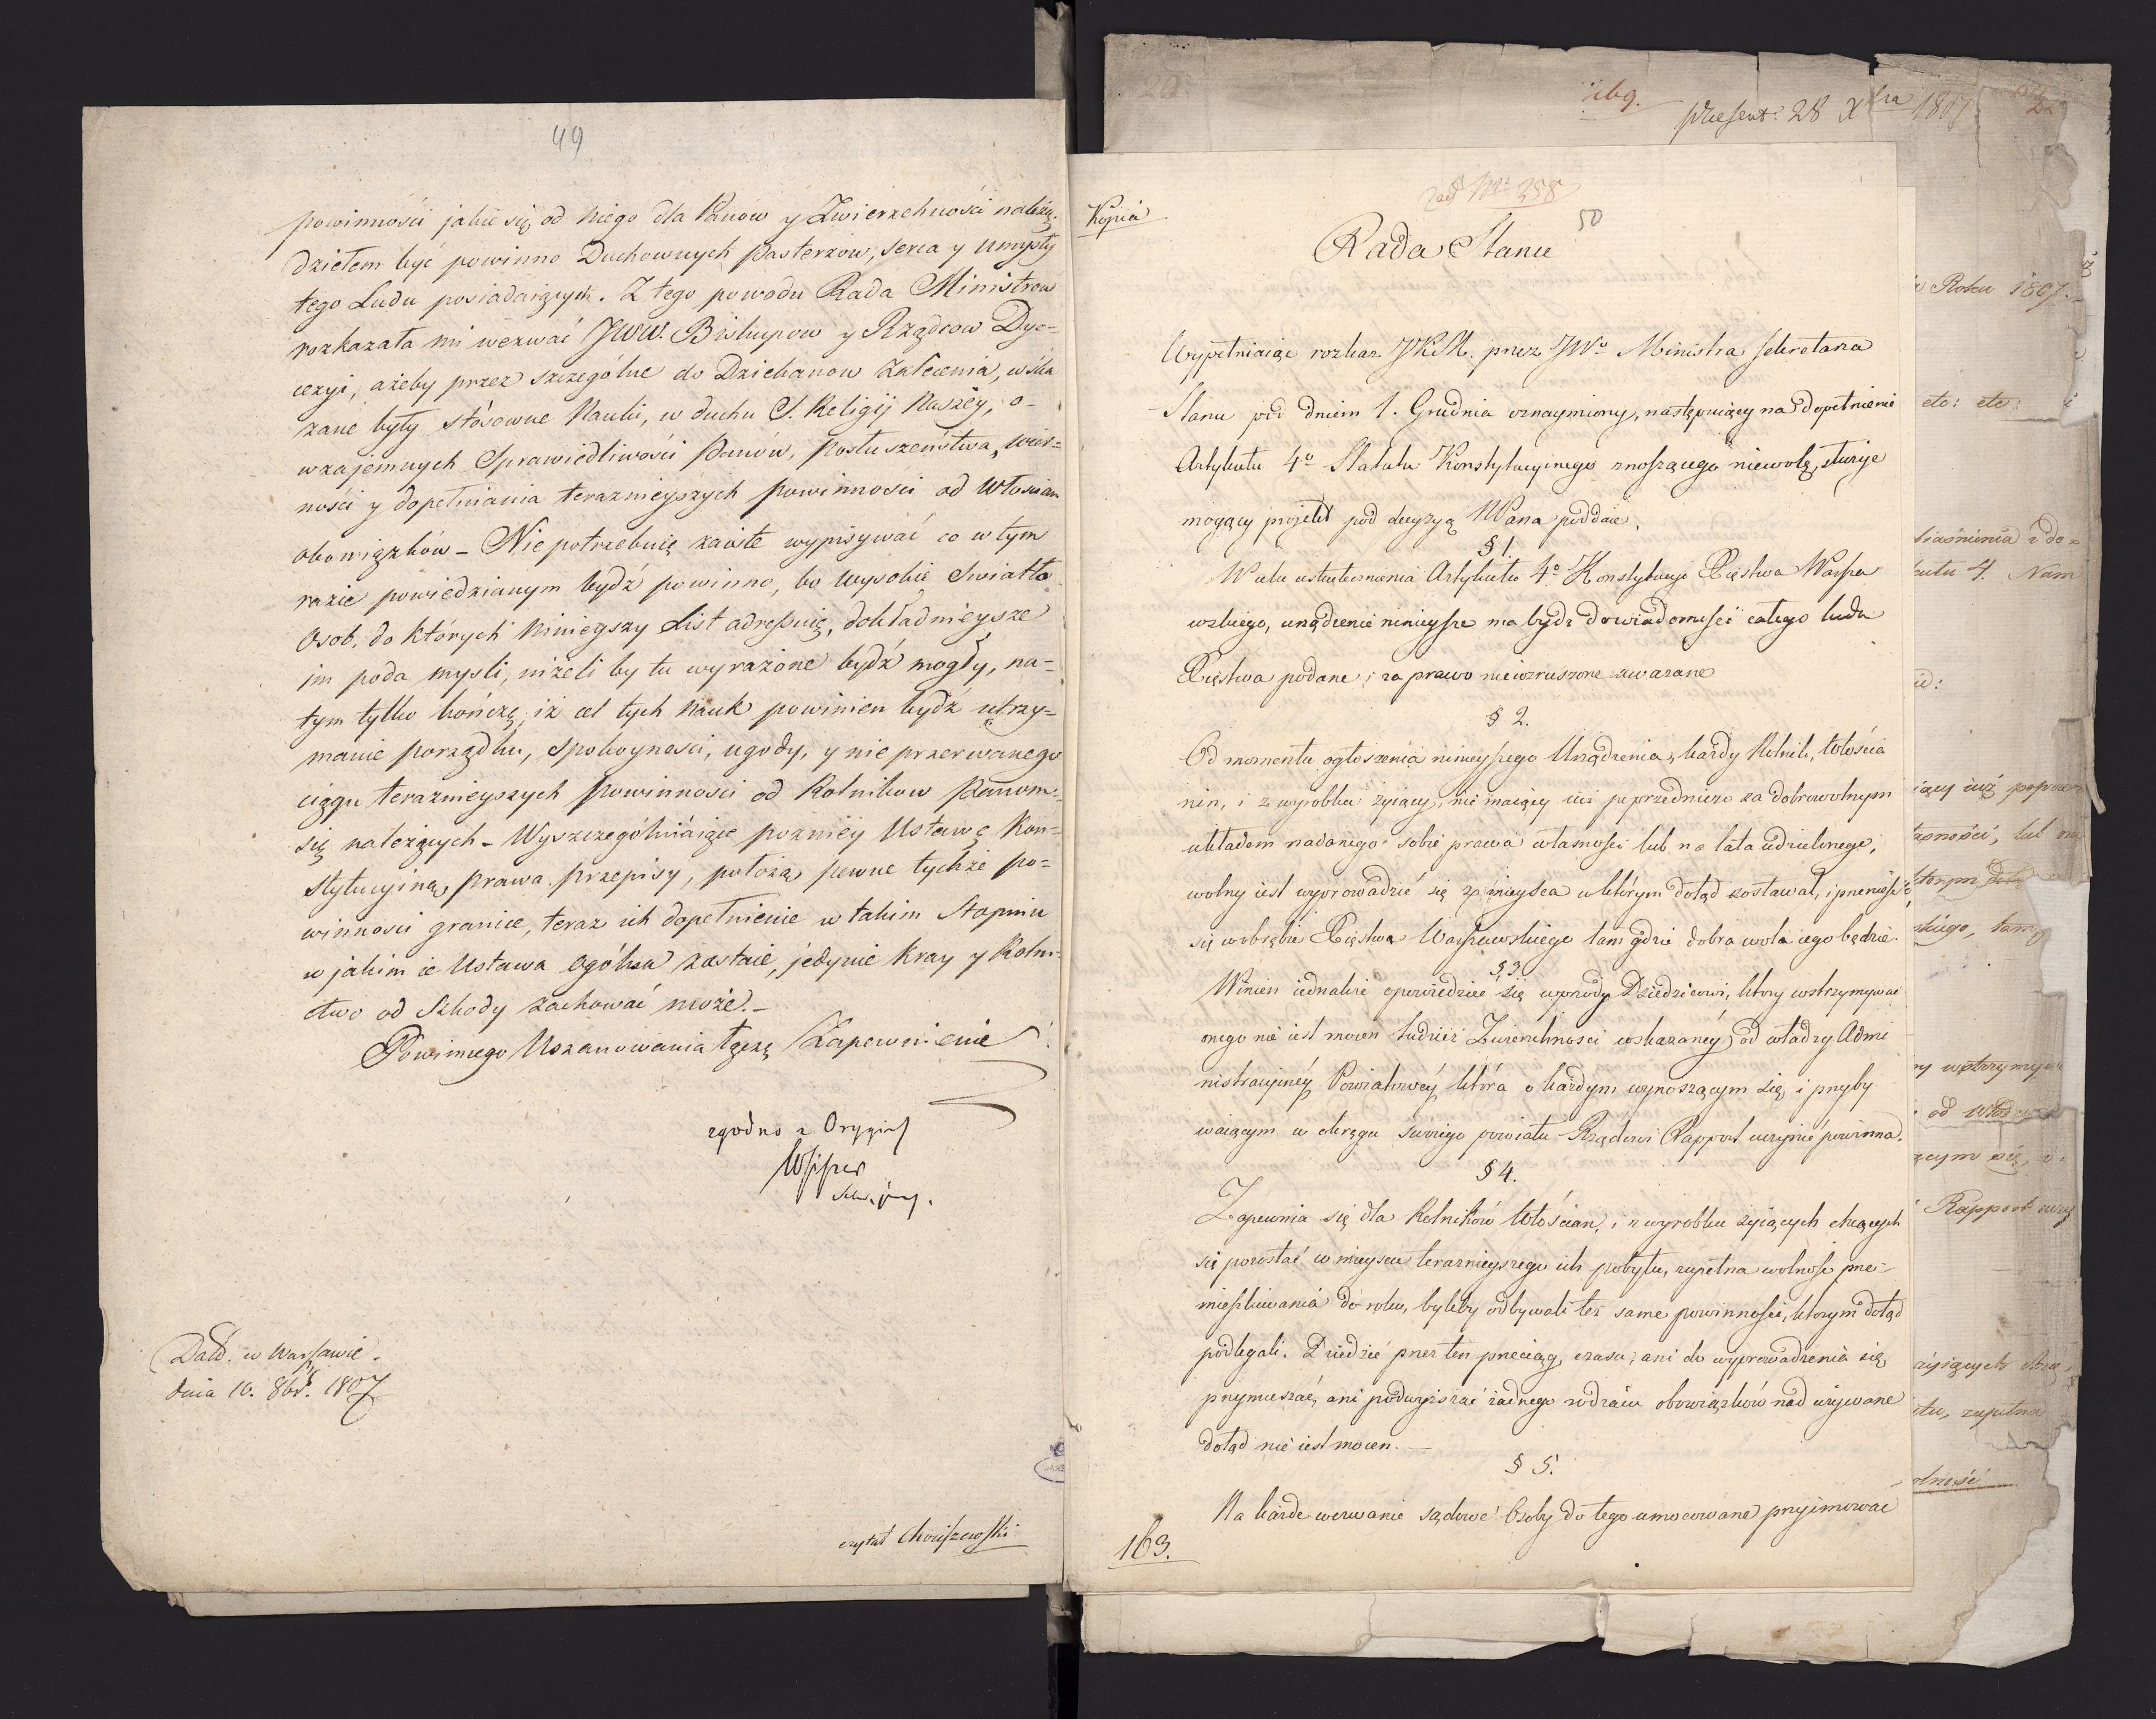 49
powinności jakie się od niego dla Panow y Zwierzchności należą.
dziełem być powinno Duchownych Pasterzow, serca y umysły
tego Ludu posiadaiących. Z tego powodu Rada Ministrow
rozkazała mi wezwać JWW. Biskupow y Rządcow Dye-
cezyi, ażeby przez szczególne do Dziekanow zalecenia, wska
zane były stósowne Nauki, w duchu S. Religij Naszéy, o-
wzajemnych Sprawiedliwości Panów, Posłuszeństwa, wier=
ności y dopełniania teraznieyszych powinności od Włoscian
obowiązków - Nie potrzebuię zaiste wypisywać co w tym
razie powiedzianym bydź powinno, bo wysokie Swiatło
Osob, do których niniegszy List adressuię, dokładnieysze
im poda mysli, niżeli by tu wyrażone bydź mogły, na=
tym tylko kończę, iż cel tych Nauk powinien bydź utrzy=
manie porządku, spokoynosci, ugody, y nie przerwanego
ciągu teraznieyszych powinności od Rolnikow Panom
się należących - Wyszczególniaiąc poznièy Ustawę Kon=
stytucyiną, prawa przepisy, położą pewne tychże po=
winnosci granice, teraz ich dopełnienie w takim Stopniu
w jakim ie Ustawa ogólna zastaie, jedynie Kray y Rolni=
ctwo od Szkody zachować może.-
Powinnego Uszanowania łączę Zapewnienie
zgodno z Orygin
Datt. w Warszawie.
dnia 10. 8br. 1807
czytał Chwiszewski
169.
præsent: 28 Xbra 1807
ad Nr 258
50
Kopiá
Rada Stanu
Wypełniaiąc rozkaz JKM. przez JWo Ministra Sekretarza
Stanu pod dniem 1. Grudnia oznaymiony, następuiący na dopełnienie
Artykułu 4o Statutu Konstytucyinego znoszącego niewolą, służyć
mogący projekt pod decyzyą WPana poddaie.
§ 1.
W celu uskutecznienia Artykułu 4o Konstytucyi Xięstwa Warsza
wskiego, urządzenie ninieysze ma bydź do wiadomości całego ludu
Xięstwa podane i za prawo niewzruszone uwazane
§ 2.
Od momentu ogłoszenia ninieyszego Urządzenia, każdy Rolnik, Włościa
nin, i z wyrobku żyiący, nie maiący iuż poprzedniczo za dobrowolnym
układem nadanego sobie prawa własności lub na lata udzielnego,
wolny iest wyprowadzić się z mieysca w którym dotąd zostawał, i przenieść
się w obrębie Xięstwa Warszawskiego tam gdzie dobra wola iego będzie.
§ 3.
Winien iednakże opowiedzieć się wprzódy Dziedzicowi, który wstrzymywać
onego nie iest mocen tudzież Zwierzchności wskazanéy od władzy Admi
nistracyinéy Powiatowéy, która o każdym wynoszącym się i przyby
waiącym w okręgu swoiego powiatu Rządowi Rapport uczynić powinna.
§ 4.
Zapewnia się dla Rolników Włościan, i z wyrobku żyiących chcących
się pozostać w mieyscu teraznieyszego ich pobytu, zupełna wolność prze=
mieszkiwania do roku, byleby odbywali też same powinności, którym dotąd
podlegali. Dziedzic przez ten przeciąg czasu, ani do wyprowadzenia się
przymuszać, ani podwyższać żadnego rodzaiu obowiązków nad używane
dotąd nie iest mocen.—
§ 5.
Na każde wezwanie sądowe Osoby do tego umocowane przyimować
163.
Roku 1807.
etc: etc:
kułu 4. Nam
iący iuż poprzed
skiego, tam
ry wstrzymywa
od Wład
ącym się,
Rapport uczy
żyiących chcą
tu, zupełna
olność